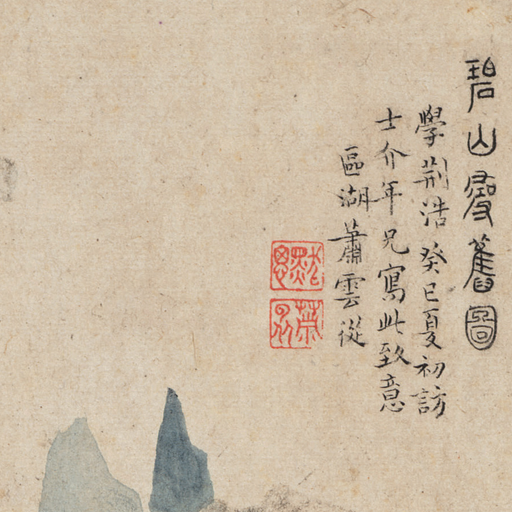 碧山尋舊圖
學荆浩癸巳夏初訪
士介年兄寫此致意
區湖蕭雲從